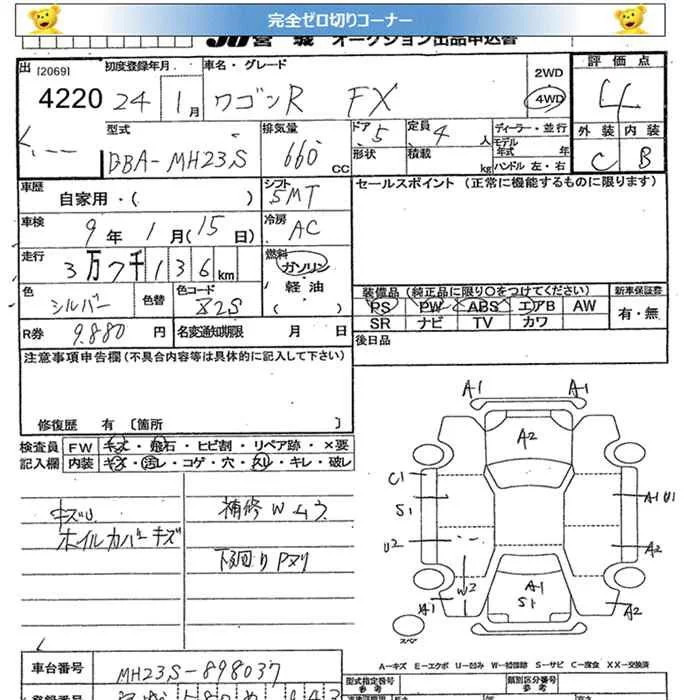 完全ゼロ切りコーナー
JU宮城 オークション出品申込書
出 [2069] 初度登録年月 車名・グレード 2WD 評価点
4220 24 1月 ワゴンR FX 4WD 4
型式 排気量 ドア 5 定員 4人 ディーラー・並行 外装 内装
DBA-MH23S 660cc 形状 積載 kg モデル年式 年 ハンドル 左・右 C B
車歴 自家用・( ) シフト 5MT セールスポイント (正常に機能するものに限ります)
車検 9年 1月(15日) 冷房 AC
走行 3万7千136km 燃料 ガソリン 軽油 ( )
装備品 (純正品に限り○をつけてください) 新車保証書
色 シルバー 色替 色コード Z2S PS PW ABS エアB AW 有・無
SR ナビ TV カワ
R券 9.880円 名変通知期限 月 日 後日品
注意事項申告欄(不具合内容等は具体的に記入して下さい)
修復歴 有 〔箇所 〕
検査員 FW キズ・飛石・ヒビ割・リペア跡・×要
記入欄 内装 キズ・汚レ・コゲ・穴・スレ・キレ・破レ
キズU 補修Wムラ
ホイルカバーキズ 下回りPヌリ
A1 A1
A2
C1
S1 A1 U1
U2 A2
W2 A1
S1
A1 A2
スペア
A-キズ E-エクボ U-凹み W-補修跡 S-サビ C-腐食 XX-交換済
車台番号 MH23S-898037 型式指定番号 類別区分番号
参考 参考
登録番号 長さ 高さ